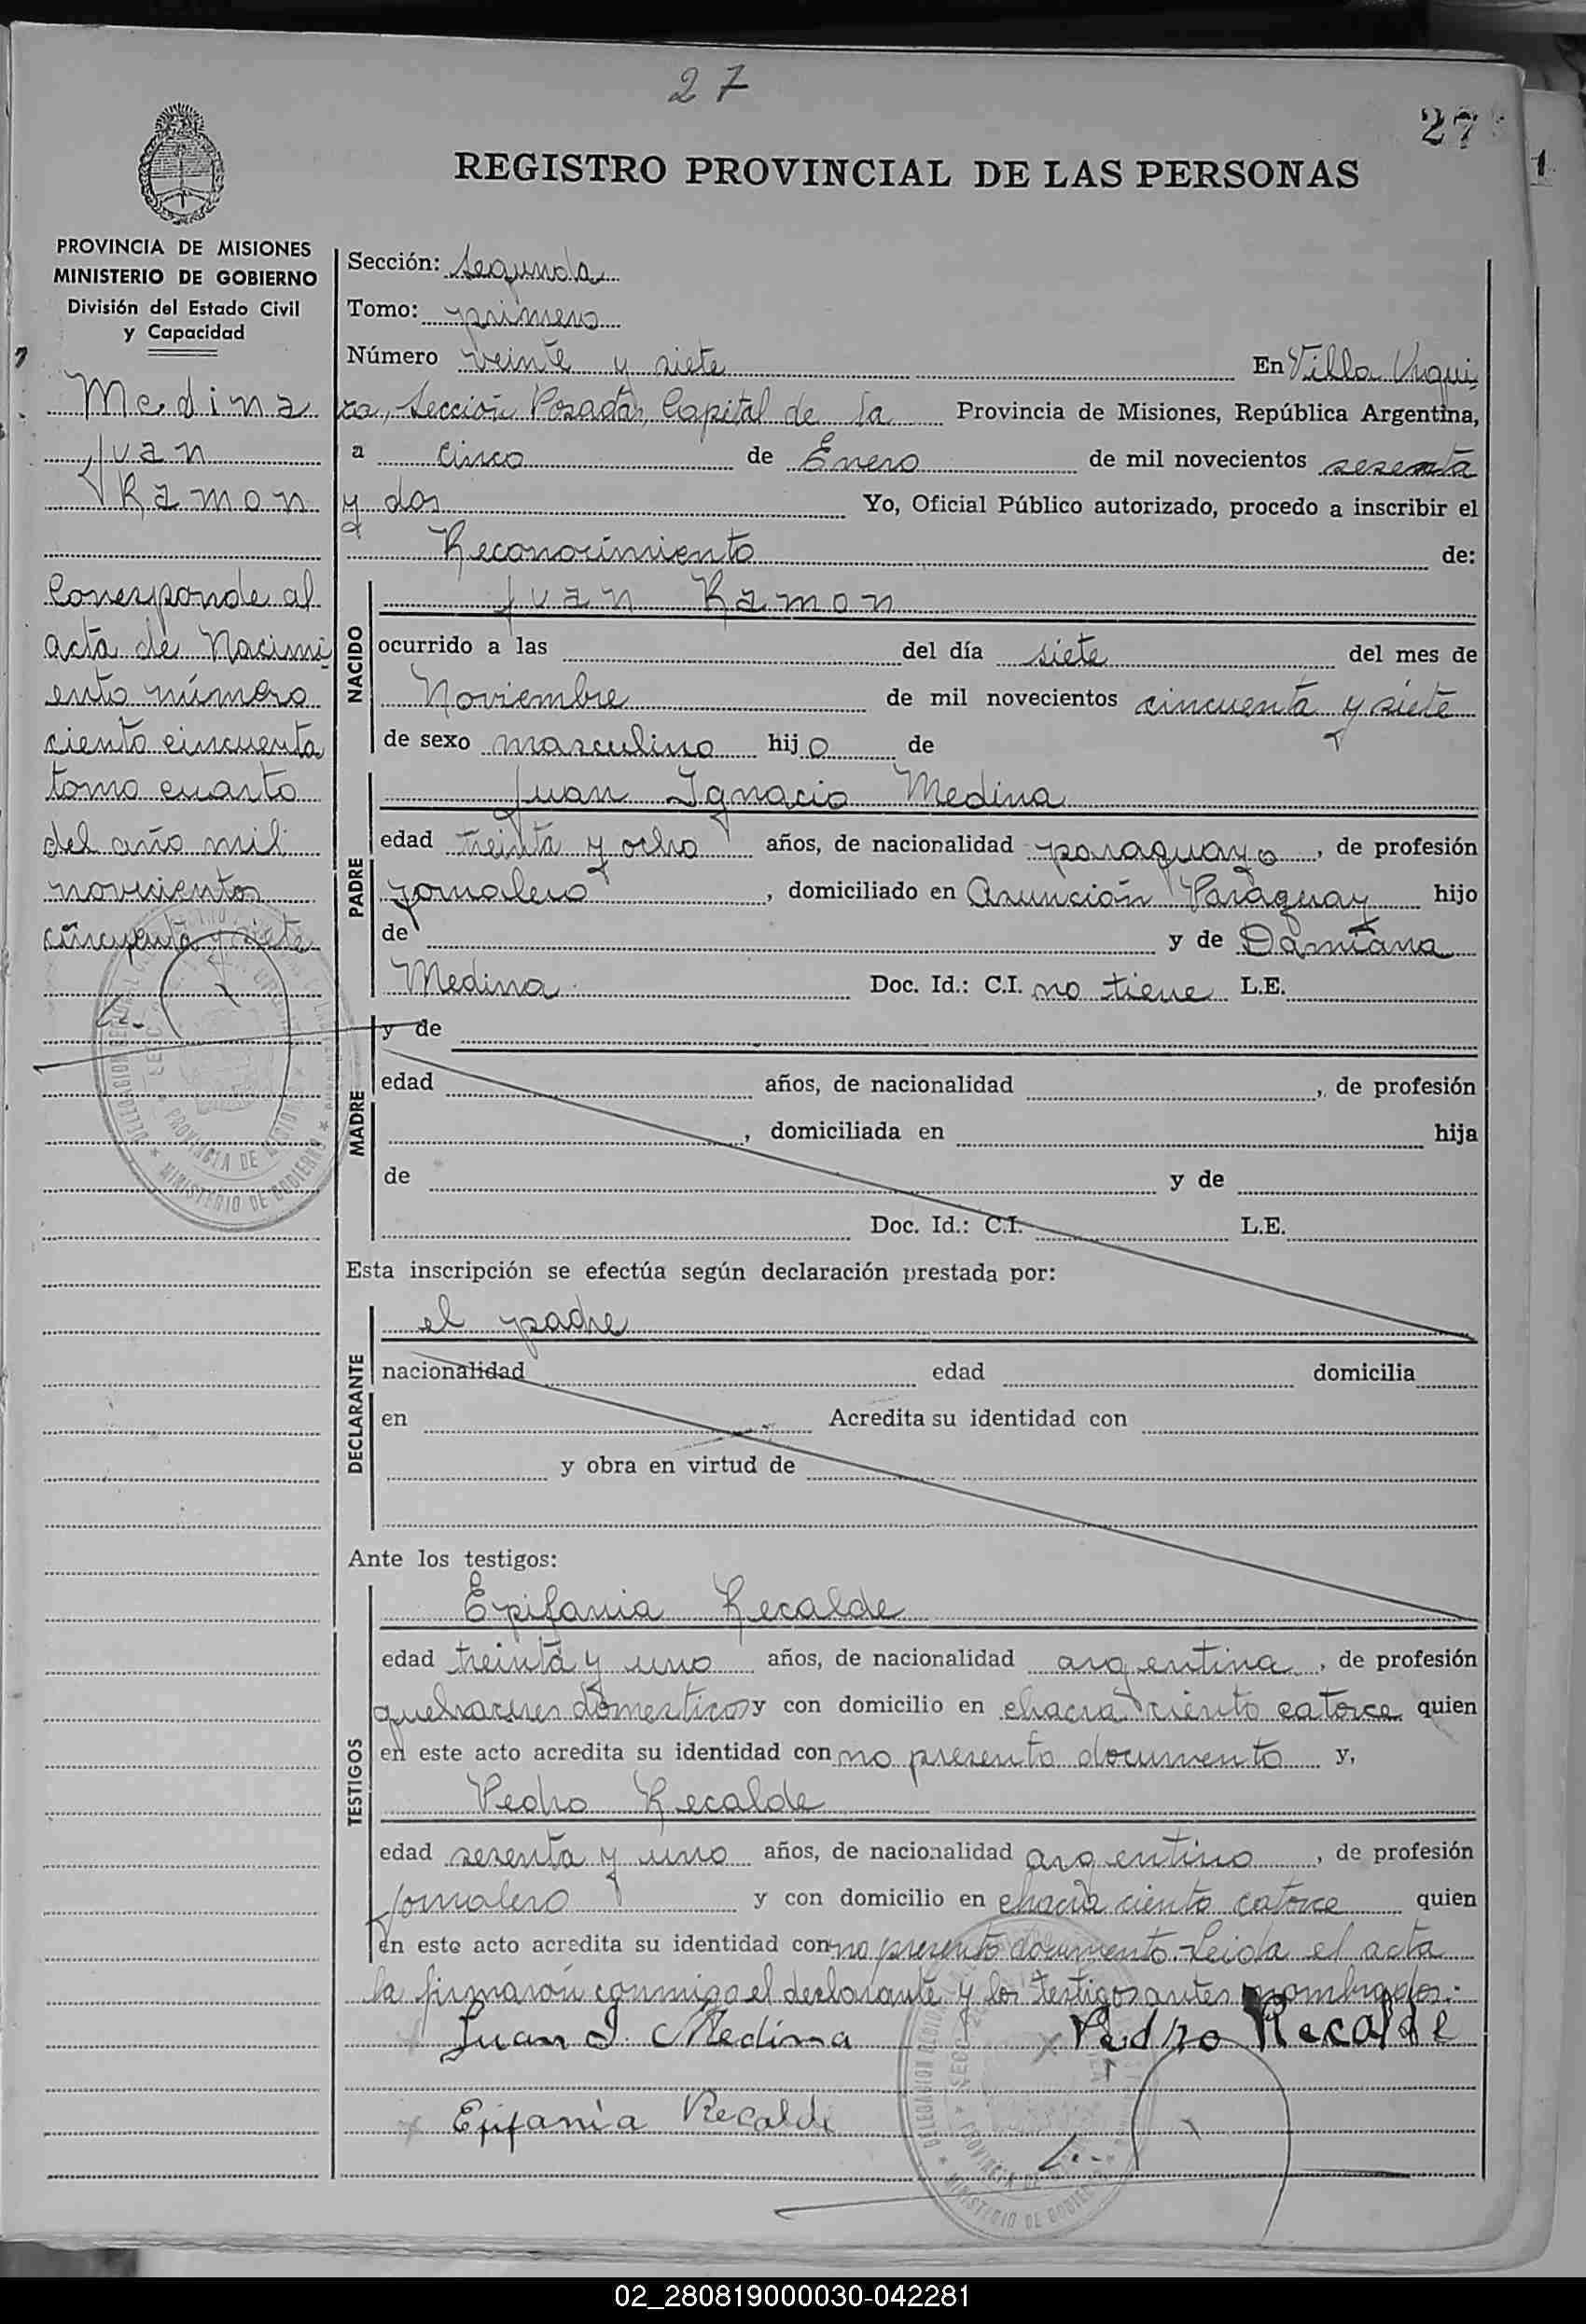 27
27
REGISTRO PROVINCIAL DE LAS PERSONAS
PROVINCIA DE MISIONES
MINISTERIO DE GOBIERNO
División del Estado Civil
y Capacidad
Medina
Juan
Ramon
Corresponde al
acta de Nacimi
ento número
ciento cincuenta
tomo cuarto
del año mil
novecientos
cincuenta y siete
Sección: Segunda
Tomo: primero
Número veinte y siete En Villa Urqui
za, Sección Posadas, Capital de la Provincia de Misiones, República Argentina,
a cinco de Enero de mil novecientos sesenta
y dos Yo, Oficial Público autorizado, procedo a inscribir el
Reconocimiento de:
NACIDO
Juan Ramon
ocurrido a las del día siete del mes de
Noviembre de mil novecientos cincuenta y siete
de sexo masculino hijo de
PADRE
Juan Ignacio Medina
edad treinta y ocho años, de nacionalidad paraguayo, de profesión
jornalero, domiciliado en Asunción Paraguay hijo
de y de Damiana
Medina Doc. Id.: C.I. no tiene L.E.
MADRE
y de
edad años, de nacionalidad , de profesión
, domiciliada en hija
de y de
Doc. Id.: C.I. L.E.
Esta inscripción se efectúa según declaración prestada por:
DECLARANTE
el padre
nacionalidad edad domicilia
en Acredita su identidad con
y obra en virtud de
Ante los testigos:
TESTIGOS
Epifania Recalde
edad treinta y uno años, de nacionalidad argentina, de profesión
quehaceres domesticos y con domicilio en chacra ciento catorce quien
en este acto acredita su identidad con no presento documento y,
Pedro Recalde
edad sesenta y uno años, de nacionalidad argentino, de profesión
jornalero y con domicilio en chacra ciento catorce quien
en este acto acredita su identidad con no presento documento. Leida el acta
la firmaron conmigo el declarante y los testigos antes nombrados.-
Juan I. Medina Pedro Recalde
Epifanía Recalde
PROVINCIA DE MISIONES
MINISTERIO DE GOBIERNO
02_280819000030-042281